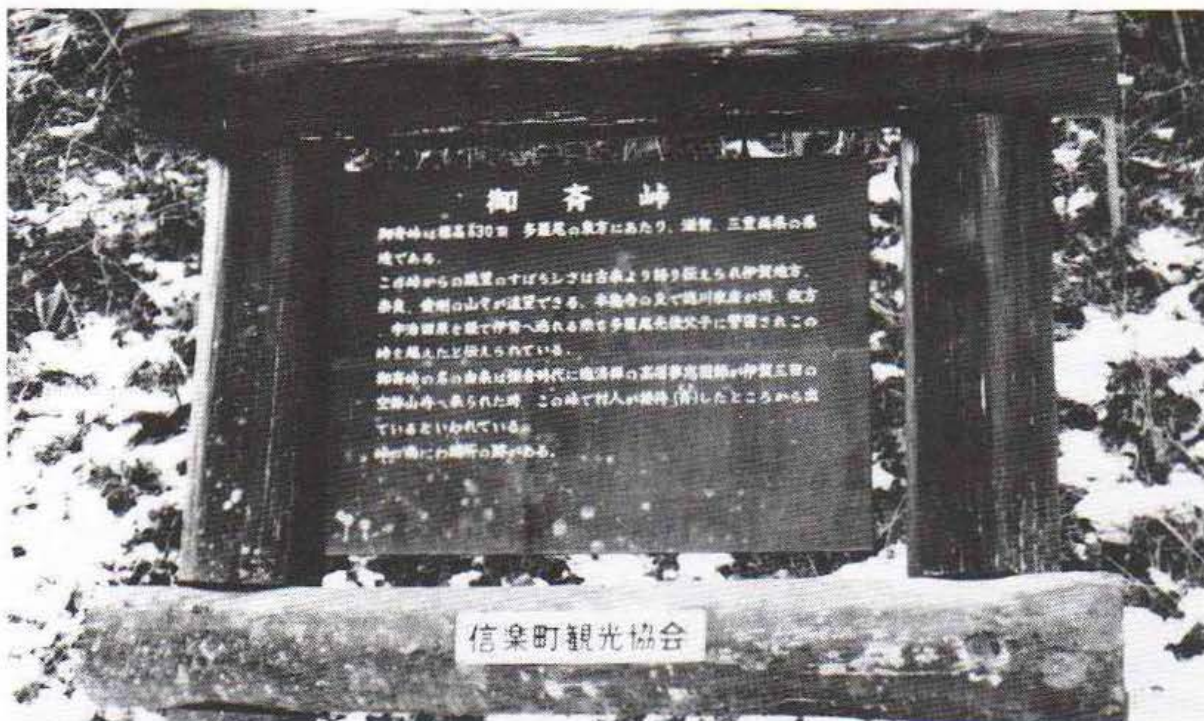 御斉峠
御斉峠は標高630m 多羅尾の東方にあたり、滋賀、三重両県の県
境である。
この峠からの眺望のすばらしさは古来より語り伝えられ伊賀地方、
奈良、の山々が遠望できる、本能寺の変で徳川家康が堺、枚方
、宇治田原を経て伊勢へ逃れる際も多羅尾光俊父子に警固されこの
峠を越えたと伝えられている。
御斉峠の名の由来は鎌倉時代に臨済禅の高僧夢窓国師が伊賀三田の
空鉢山寺へ来られた時 この峠で村人が接待(斉)したところから出
ているといわれている。
峠のにわ場所の跡がある。
信楽町観光協会